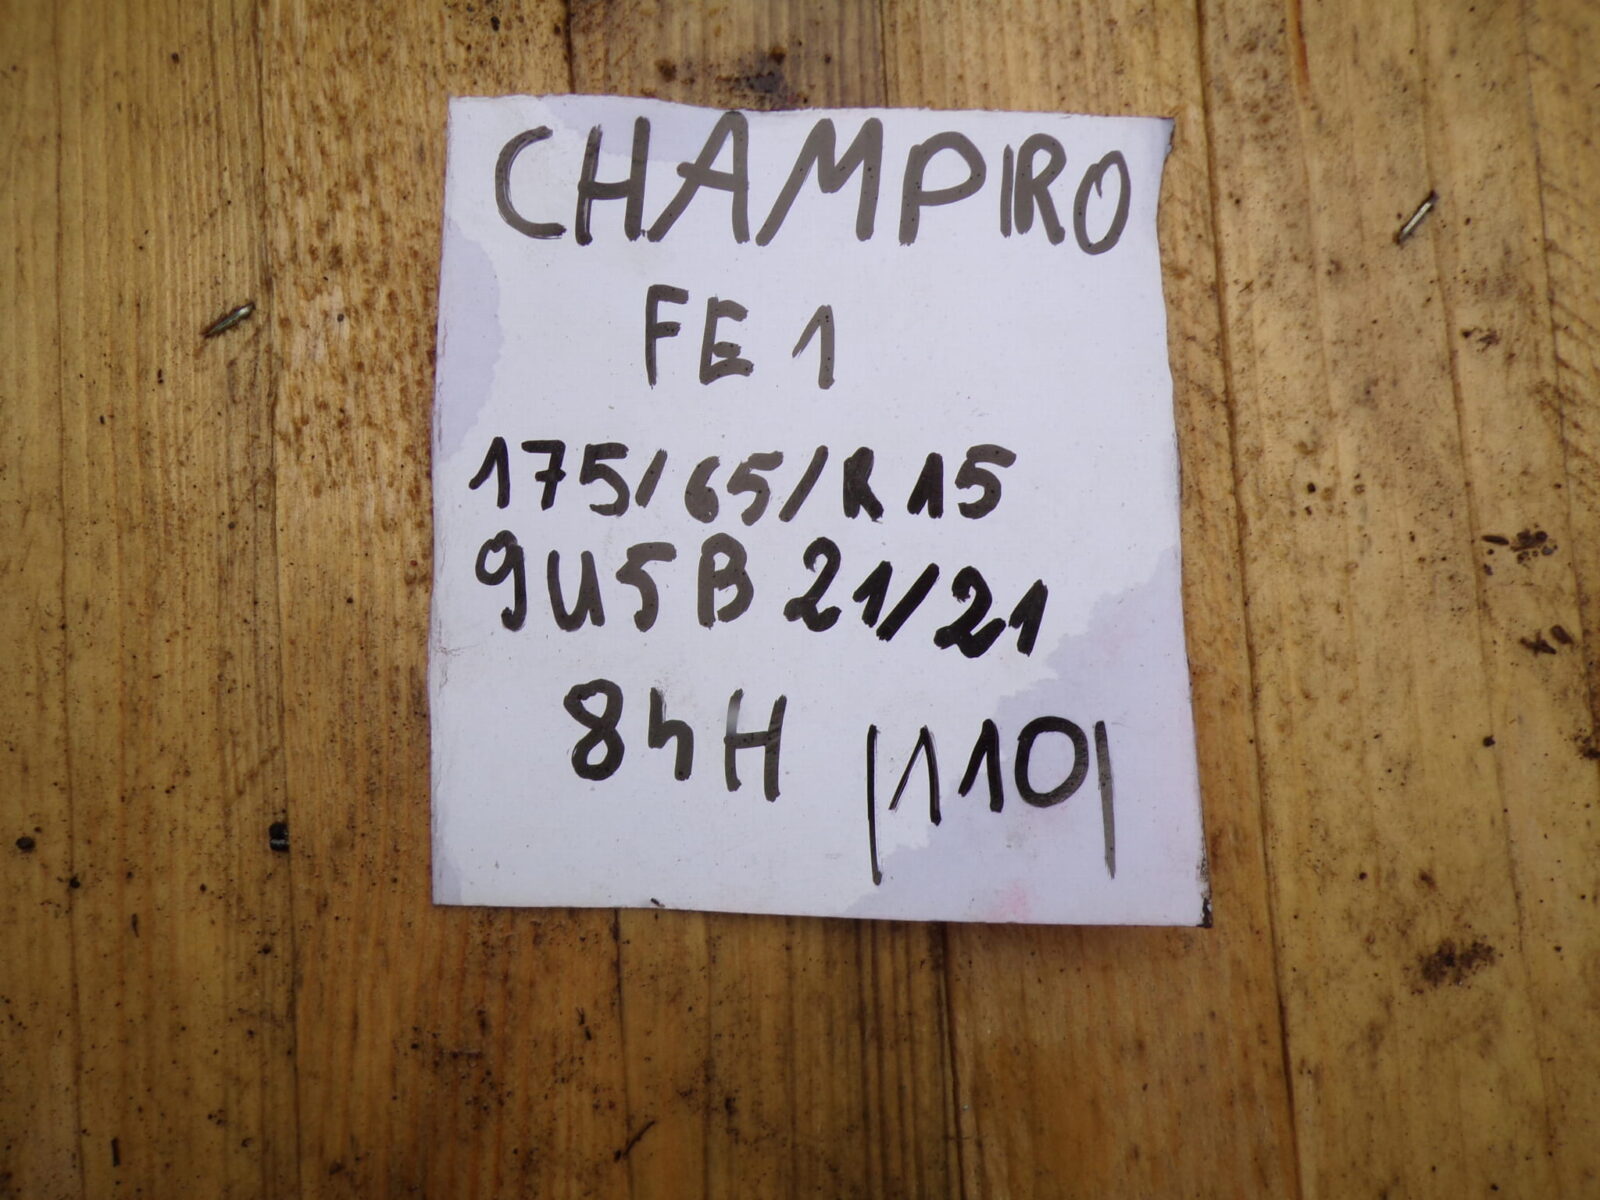 CHAMPIRO
FE 1
175/65/R 15
9U5B 21/21
84H |110|